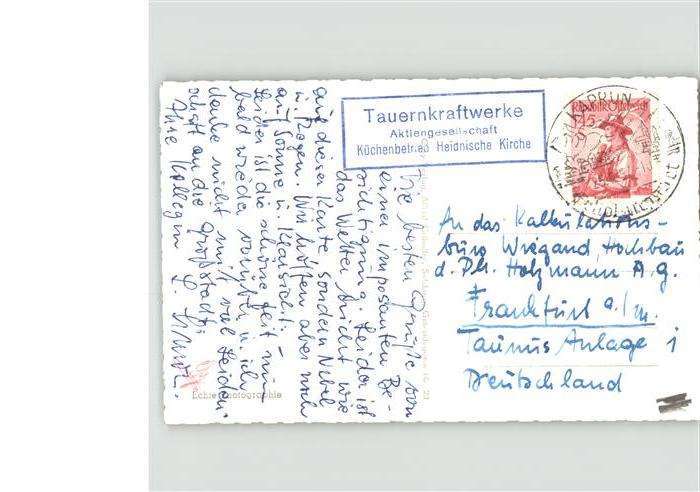 Tauernkraftwerke
Aktiengesellschaft
Küchenbetrieb Heidnische Kirche
KAPRUN
REPUBLIK ÖSTERREICH
Die besten Grüße von
einer imposanten Be-
sichtigung. Leider ist
das Wetter nicht wie
auf dieser Karte sondern Nebel
u. Regen. Wir hoffen aber noch
auf Sonne u. Klarsicht.
Leider ist die schöne Zeit nun
bald wieder vorüber u. ich
denke nicht mit viel Leiden-
schaft an die Großstadt.
Ihre Kollegin
An das Kalkulations-
büro Wiegand, Hochbau
d. Ph. Holzmann A.g.
Frankfurt a./m.
Taunus Anlage 1
Deutschland
Echte Photographie